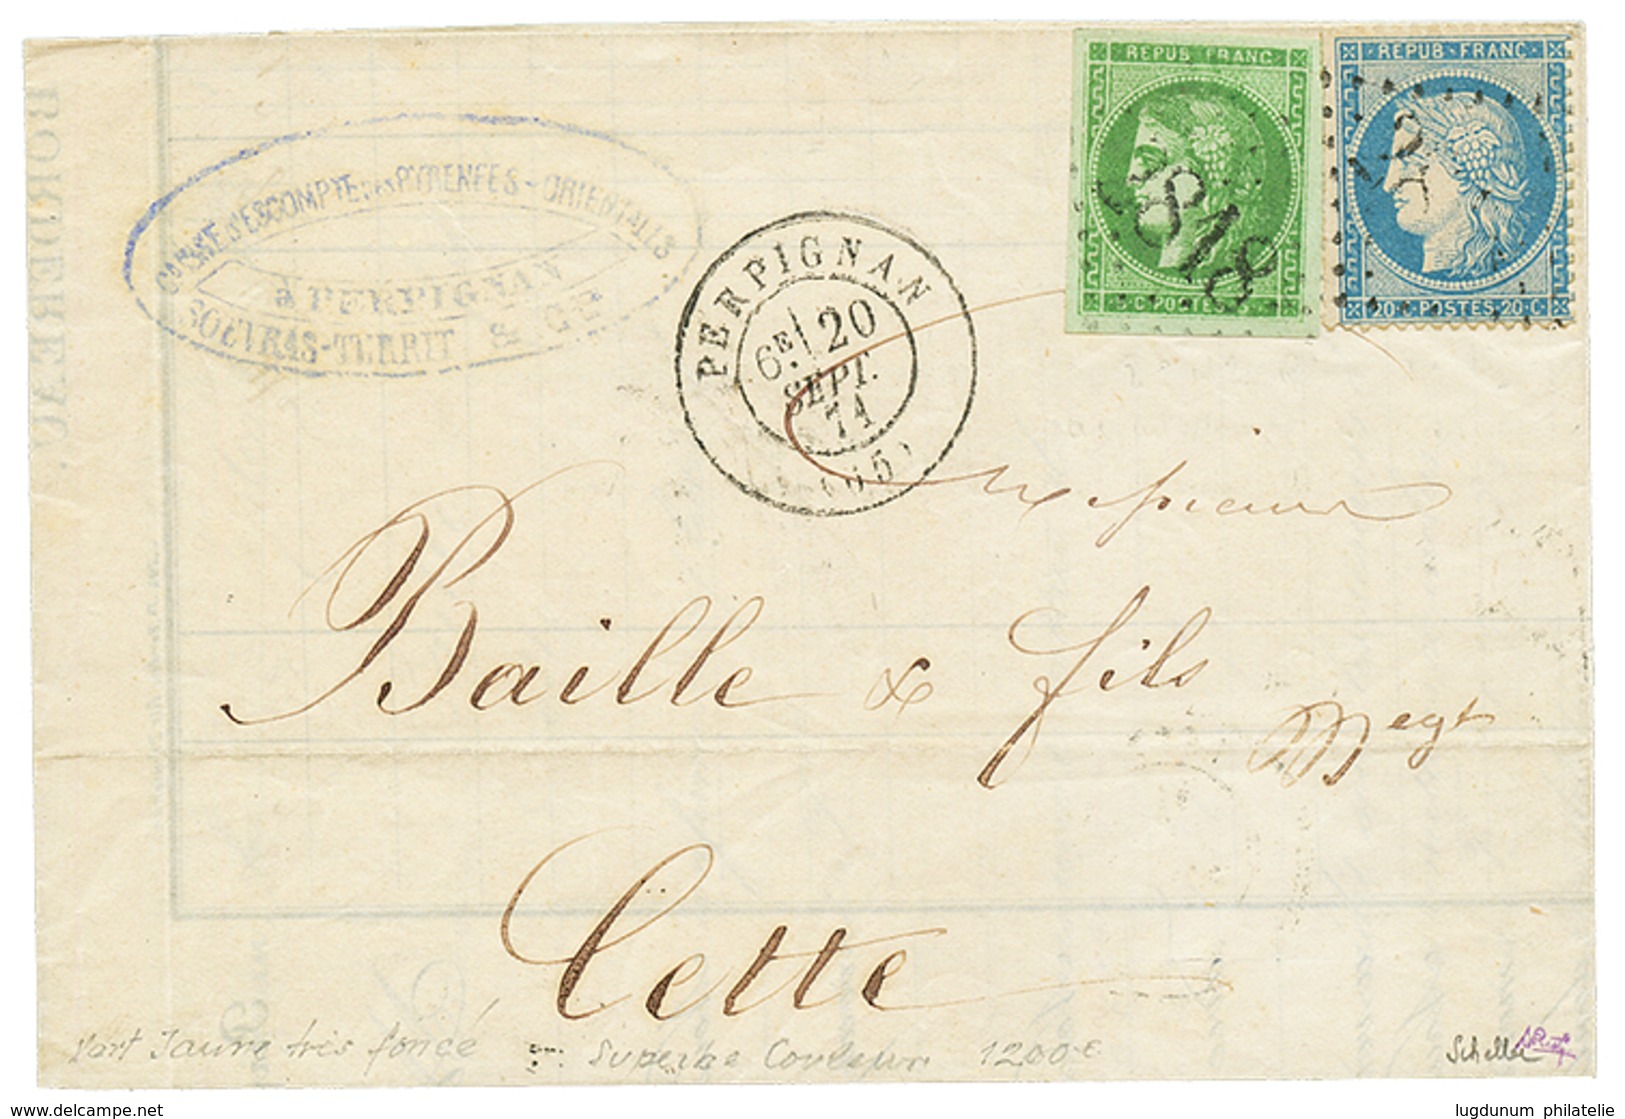 REPUB FRANC
REPUB FRANC
2818
20 C POSTES 20 C
CAISSE D'ESCOMPTE DES PYRÉNÉES-ORIENTALES
à PERPIGNAN
TERRIT & CIE
PERPIGNAN
6E 20
SEPT.
71
(65)
BORDEREAU
Messieurs
Baille & fils
Negt
Cette
Vert Jaune très foncé Superbe Couleur 1200€
Scheller
delcampe.net
lugdunum philatelie